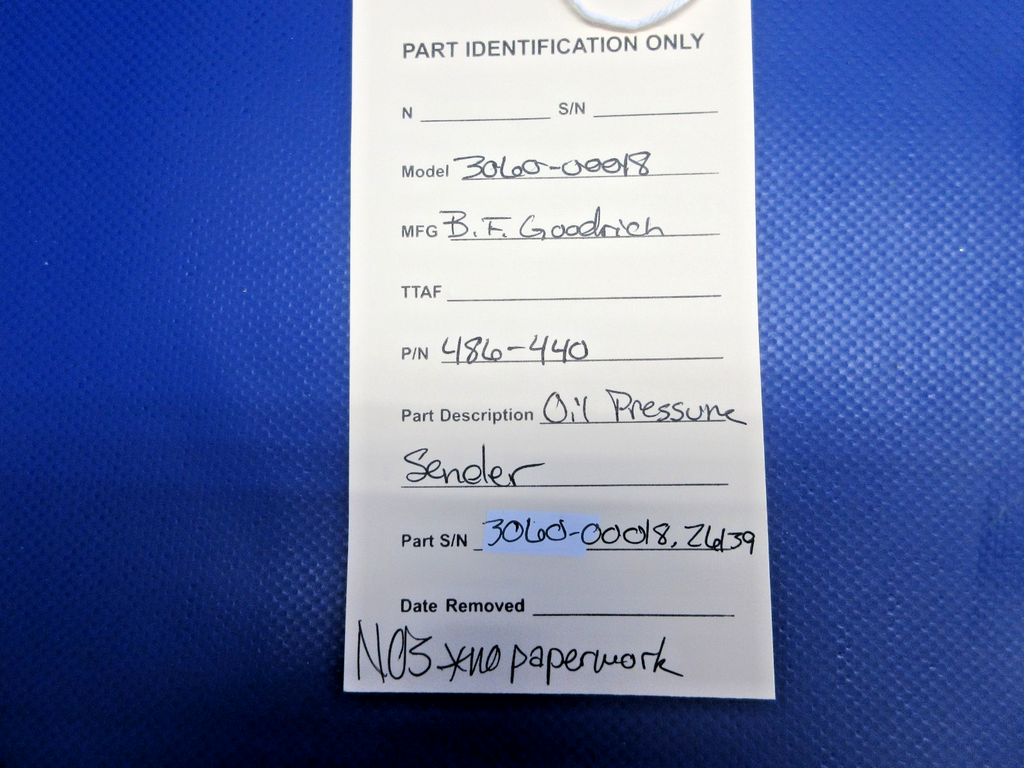 PART IDENTIFICATION ONLY
N ____________ S/N ____________
Model 3060-00018
MFG B.F. Goodrich
TTAF ____________
P/N 486-440
Part Description Oil Pressure
Sender
Part S/N 3060-00018, 26139
Date Removed ____________
NOS *no paperwork